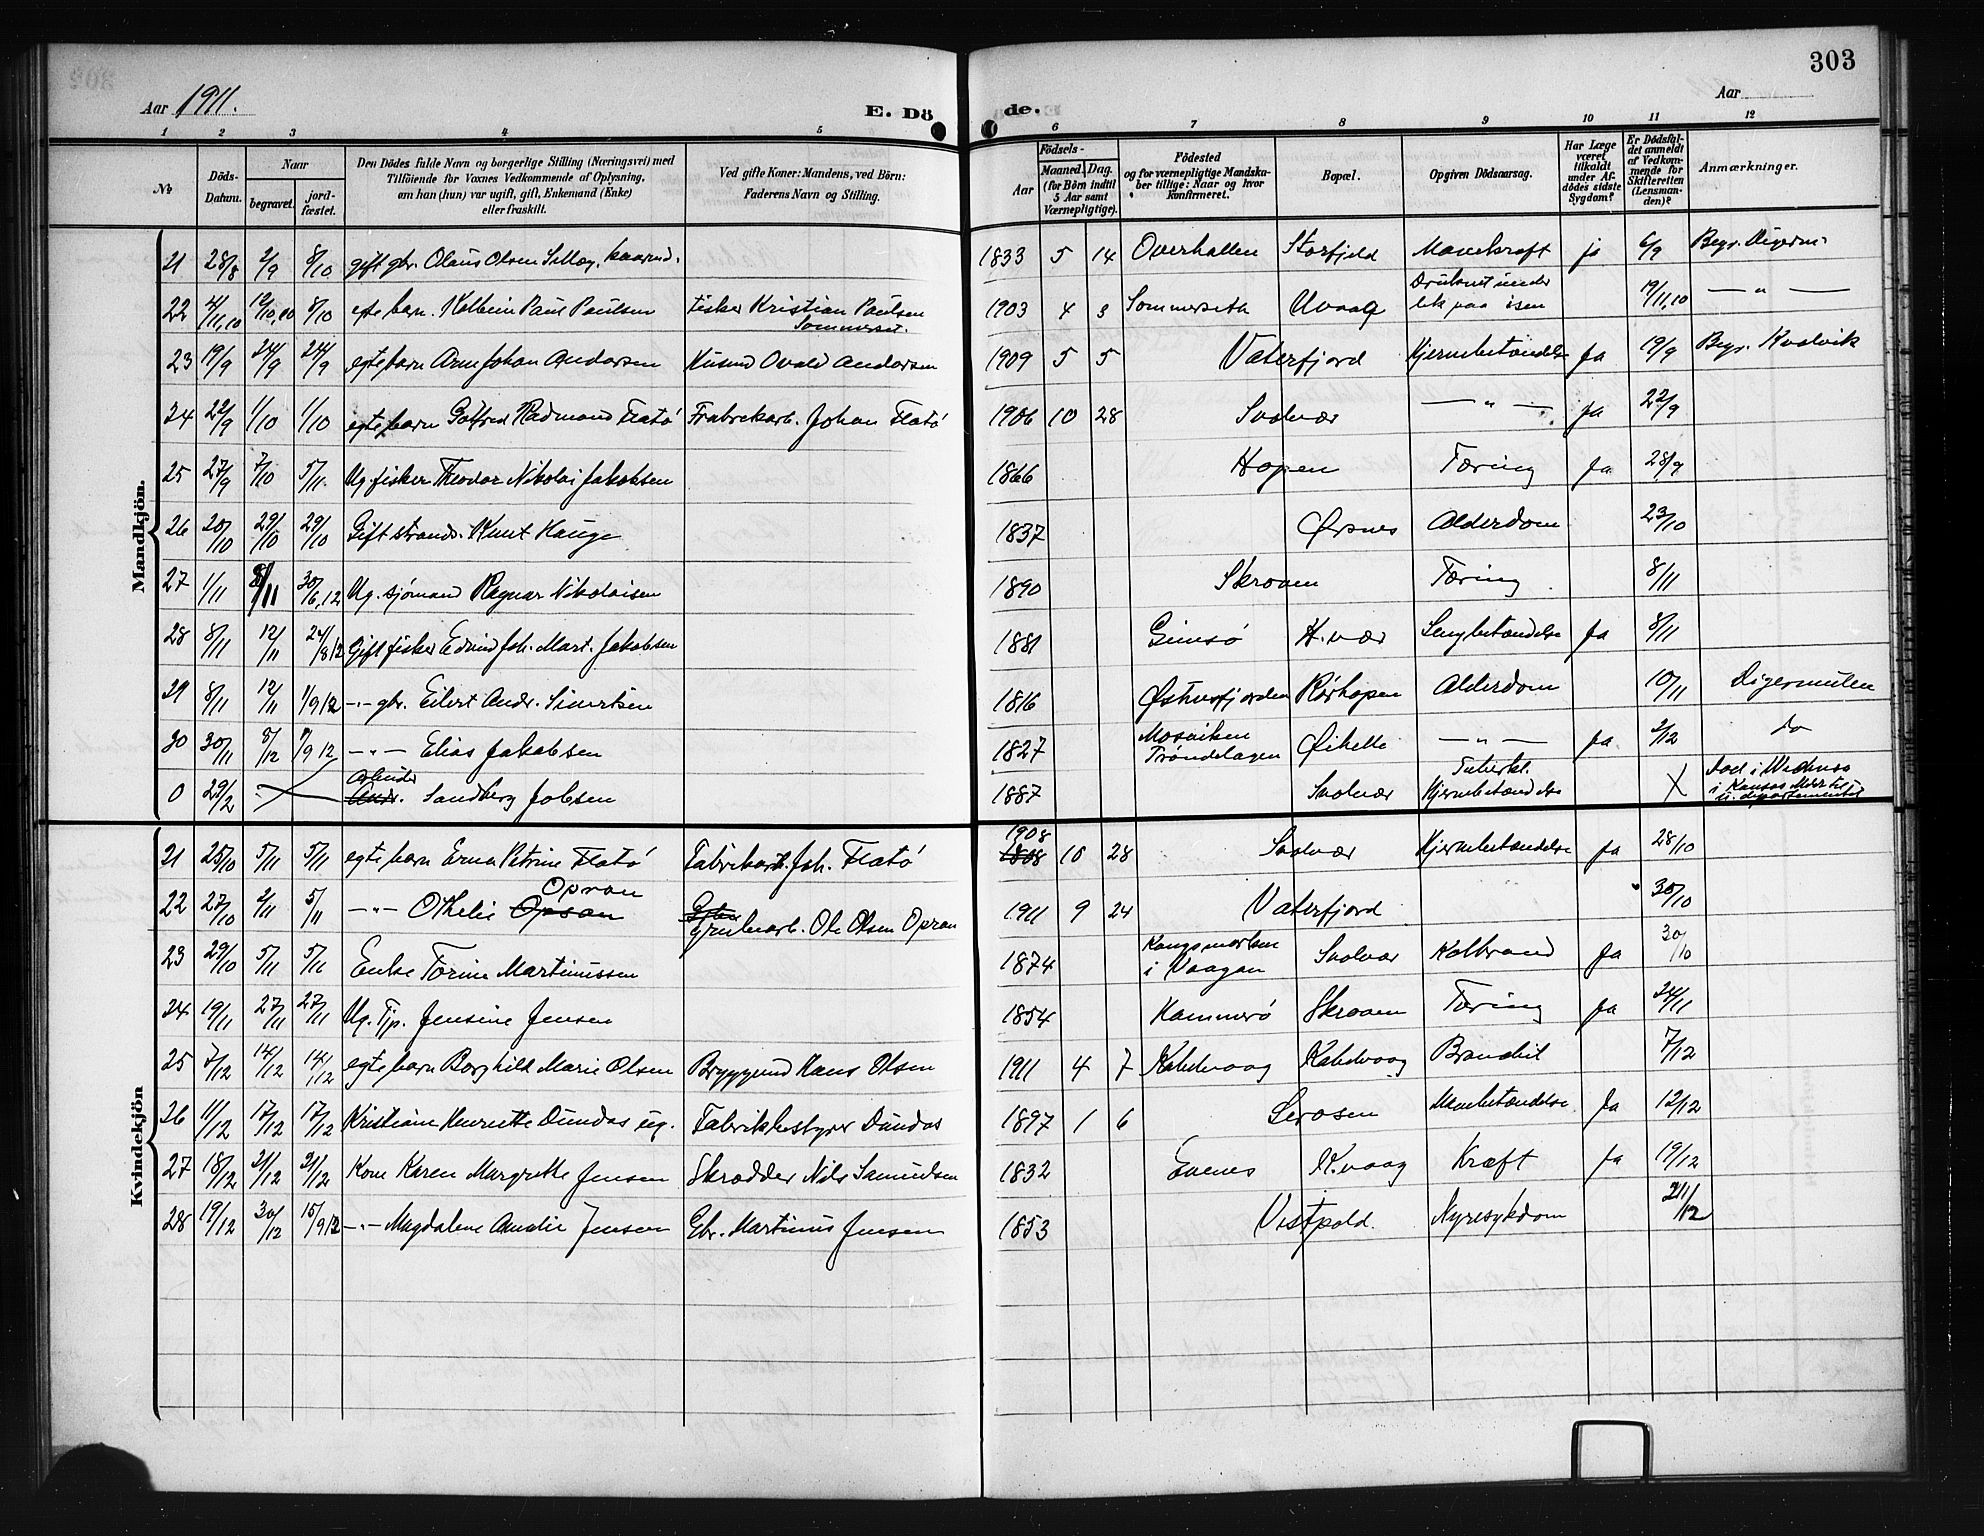 303
Aar 1911.
E. Dö
de.
Aar
1 2 3 4 5 6 7 8 9 10 11 12
№
Döds-Datum.
Naar
begravet.
jord-fæstet.
Den Dödes fulde Navn og borgerlige Stilling (Næringsvei) med
Tilföiende for Voxnes Vedkommende af Oplysning,
om han (hun) var ugift, gift, Enkemand (Enke)
eller fraskilt.
Ved gifte Koner: Mandens, ved Börn:
Faderens Navn og Stilling.
Födsels-
Aar
Maaned. Dag.
(for Börn indtil
5 Aar samt
Værnepligtige).
Födested
og for værnepligtige Mandska-
ber tillige: Naar og hvor
konfirmeret.
Bopæl.
Opgiven Dödsaarsag.
Har Læge
været
tilkaldt
under Af-
dödes sidste
Sygdom?
Er Dödsfal-
det anmeldt
af Vedkom-
mende for
Skifteretten
(Lensman-
den)?
Anmærkninger.
Mandkjön.
21 28/8 2/9 8/10 gift gbr. Olaus Olsen 1833 5 14 Overhallen Storfjeld Mavekræft ja 6/9 Begr. Digerm.
22 4/11,10 8/10 egte barn. Kolbein Paul Paulsen Fisker Kristian Paulsen Sommerset. 1903 4 3 Sommerseth Uvaag Druknet under lek paa isen 19/11,10 — " —
23 19/9 24/9 24/9 egte barn Arne Johan Andorsen Husmd Ovald Andorsen 1909 5 5 Vaterfjord Hjernebetændelse Ja 19/9 Begr. Kvalvik
24 22/9 1/10 1/10 egte barn Gotfred Rædmand Flatö Frabrikarb. Johan Flatö 1906 10 28 Svolvær — " — Ja 22/9
25 27/9 7/10 5/11 Ug. fisker Theodor Nikolai Jakobsen 1866 Hopen Tæring Ja 28/9
26 20/10 29/10 29/10 Gift strands. Knut Hauge 1837 Ørsnes Alderdom 23/10
27 1/11 8/11 30/6,12 Ug. sjømand Ragnar Nikolaisen 1890 Skroven Tæring 8/11
28 8/11 12/11 24/8 12 Gift fisker Edvind Joh. Mart. Jakobsen 1881 Gimsö H.vær Lungbetændelse Ja 8/11
29 8/11 12/11 1/9 12 -"- gbr. Eilert Andr. Sivertsen 1816 Østnesfjorden Rörhopen Alderdom 10/11 Digermulen
30 30/11 8/12 9/9 12 — " — Elias Jakobsen 1827 Mosviken Trøndelagen Øihelle — " — Ja 2/12 do
0 29/2 Arbeider Andr. Sandberg Jobsen 1887 Svolvær Tuberkl. Hjernebetændelse X
Kvindekjön
21 25/10 5/11 5/11 egte barn Erna Petrine Flatö Fabrikarb. Joh. Flatö 1908 1808 10 28 Svolvær Hjernebetændelse Ja 28/10
22 27/10 2/11 5/11 — " — Othelie Opsan Opran Grubearb. Ole Olsen Opran 1911 9 24 Vaterfjord 30/10
23 29/10 5/11 5/11 Enke Torine Martinussen 1874 Kongsmarken i Vaagan Svolvær Kolbrand Ja 30/10
24 19/11 27/11 27/11 Ug. Tjp. Jensine Jensen 1854 Hammerö Skroven Tæring Ja 24/11
25 7/12 14/12 14/12 egte barn Borghild Marie Olsen Bryggemd Hans Olsen 1911 4 7 Kabelvaag Kabelvaag Bronchit 7/12
26 11/12 17/12 17/12 Kristiane Henriette Dundas ug. Fabrikbestyrer Dundas 1897 1 6 Svrosen Mavebetændelse Ja 12/12
27 18/12 21/12 21/12 Kone Karen Margrethe Jensen Skrædder Nils Samuelsen 1832 Evenes K.vaag Kræft Ja 19/12
28 19/12 30/12 15/9 12 -"- Magdalene Amalie Jensen Gbr. Martinus Jensen 1853 Vestpold. Nyresykdom 21/12